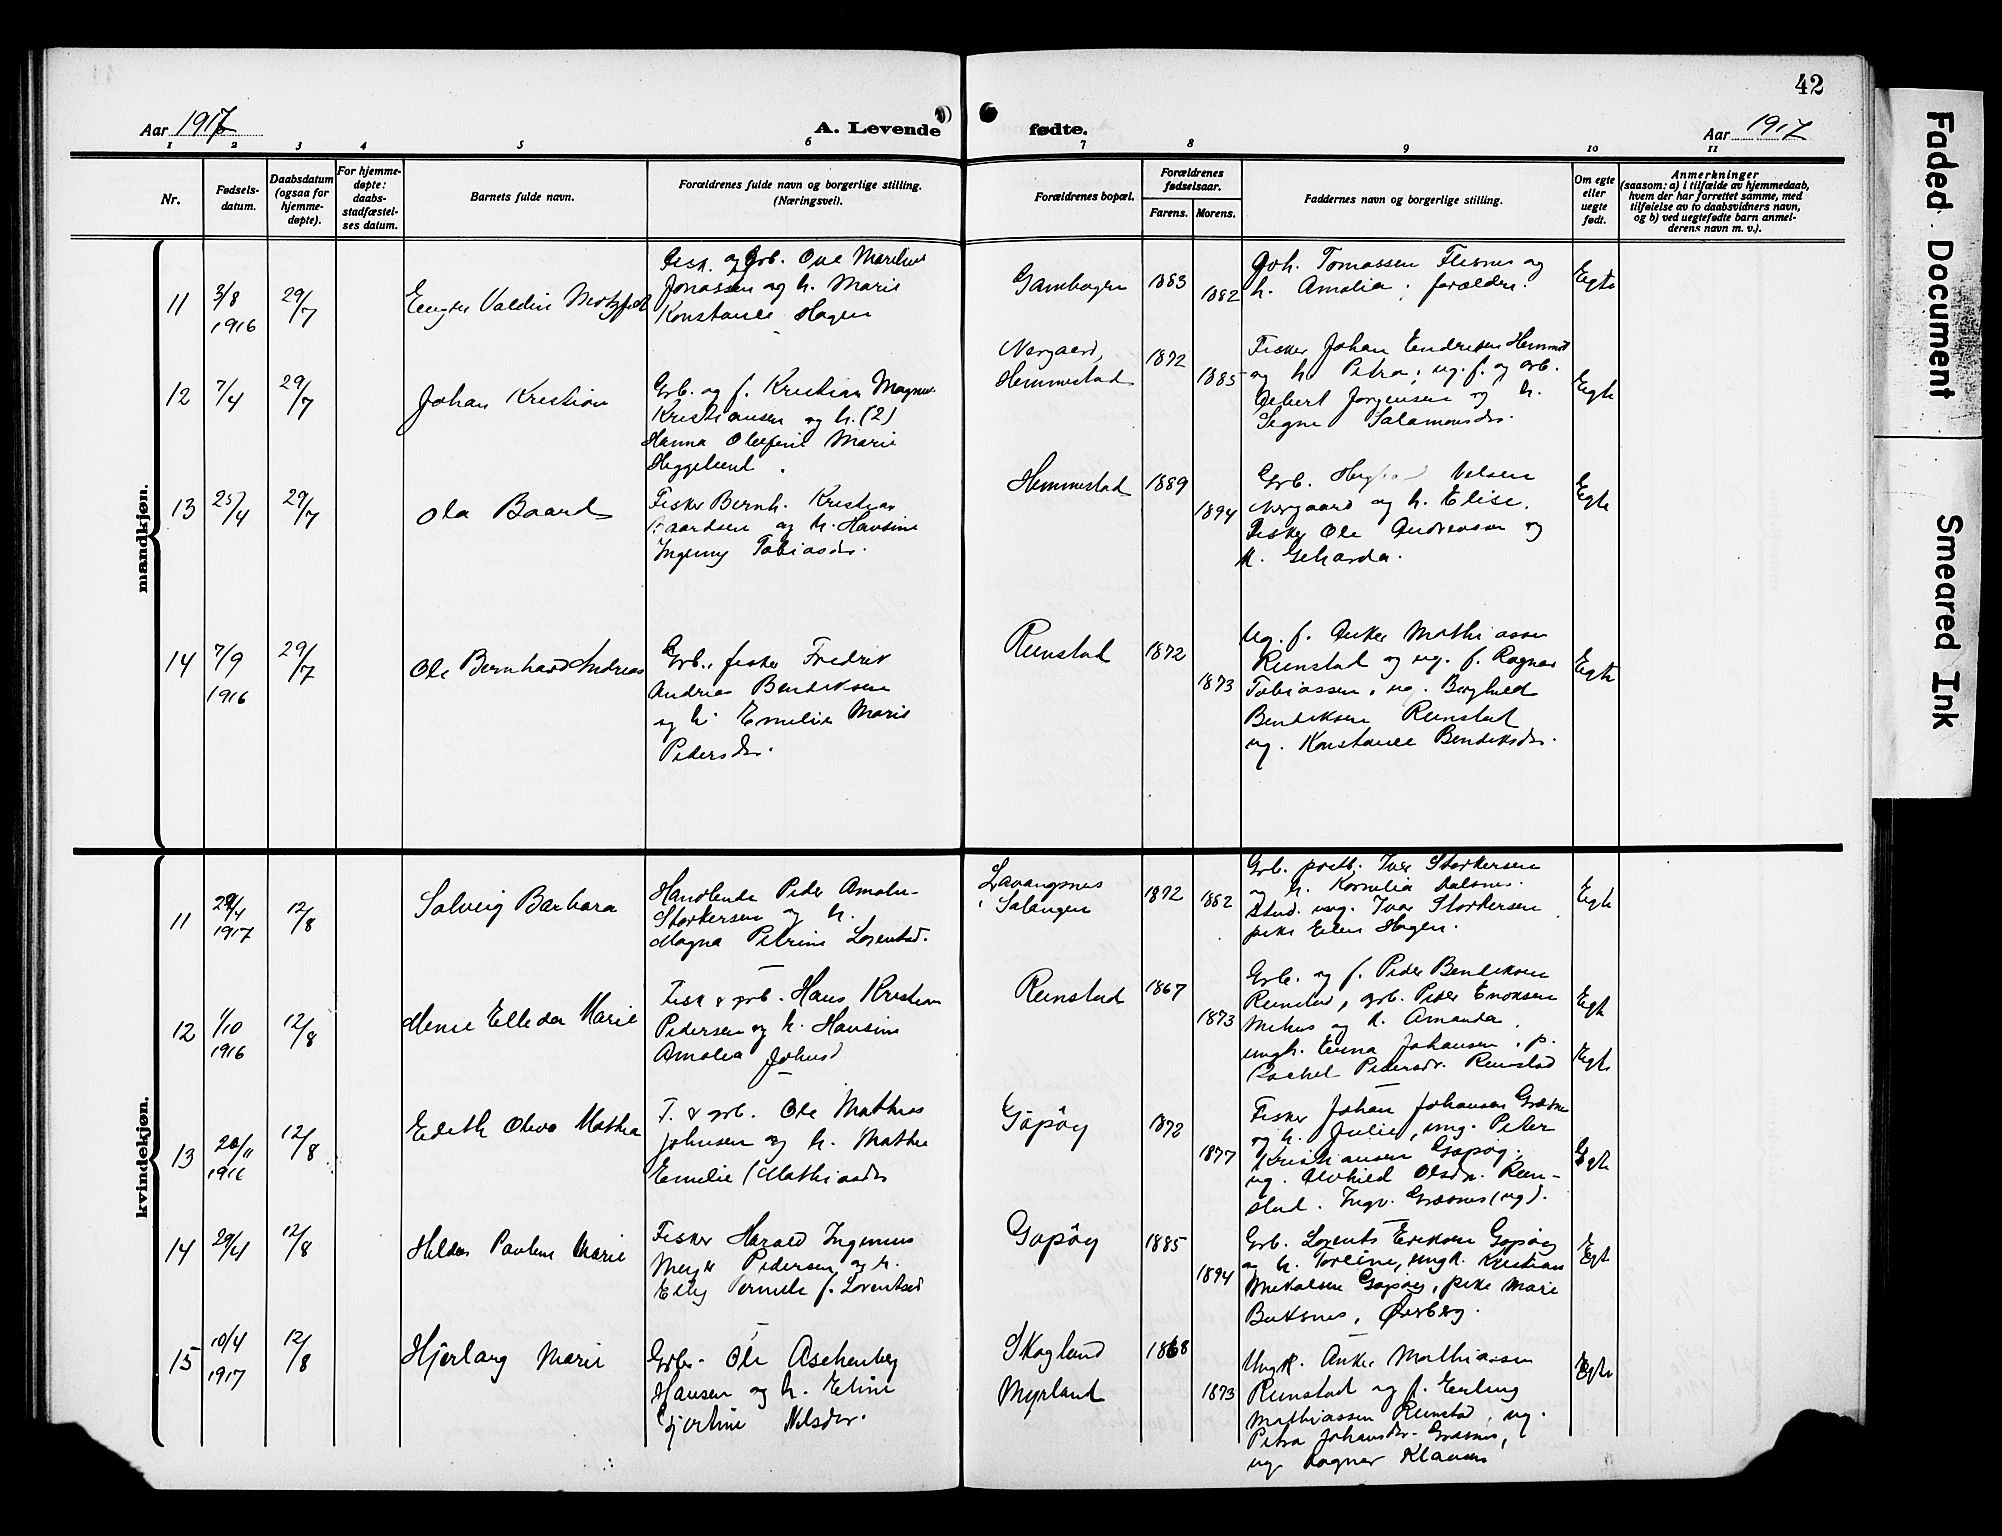 42
Aar 1917
A. Levende fødte.
Aar 1917
1 2 3 4 5 6 7 8 9 10 11
Nr.
Fødsels-
datum.
Daabsdatum
(ogsaa for
hjemme-
døpte).
For hjemme-
døpte:
daabs-
stadfæstel-
ses datum.
Barnets fulde navn.
Forældrenes fulde navn og borgerlige stilling.
(Næringsvei).
Forældrenes bopæl.
Forældrenes
fødselsaar.
Farens. Morens.
Faddernes navn og borgerlige stilling.
Om egte
eller
uegte
født.
Anmerkninger
(saasom: a) i tilfælde av hjemmedaab,
hvem der har forrettet samme, med
tilføielse av to daabsvidners navn,
og b) ved uegtefødte barn anmel-
derens navn m. v.).
mandkjøn.
11
3/8
1916
29/7
Valdin
Fisk. og Grb. Ove
Jonassen og h. Marie
Konstance Hagen
Gambogen
1883
1882
Joh. Tomassen Flesnes og
h. Amalia; forældre.
Egte
12
7/4
29/7
Johan Kristian
Grb. og f. Kristian Magnus
Kristiansen og h. (2)
Hanna Marie
Heggelund
Nergaard,
Hemmestad
1872
1885
Fisker Johan Endresen
og h. Petra; ug. f. og grb.
Jørgensen og h.
Signe Salamonsdr.
Egte
13
25/4
29/7
Ola Baard
Fisker Bernh. Kristian
Baardsen og h. Hansine
Tobiasdr.
Hemmestad
1889
1894
Grb. Nilsen
Nergaard og h. Elise.
Fisker Ole Andreassen og
h. Geharda.
Egte
14
7/9
1916
29/7
Ole Bernhard Andreas
Grb., fisker Fredrik
Andreas Bendiksen
og h. Emelie Marie
Pedersdr.
Renstad
1872
1873
Ug. f. Anker Mathiassen
Renstad og ug. f. Ragnar
Tobiassen, ug. Borghild
Bendiksen Renstad
ug. Konstance Bendiksdr.
Egte
kvindekjøn.
11
29/4
1917
12/8
Solveig Barbara
Handlende Peder
Storkersen og h.
Magna Petrine Lorentsd.
Lavangsnes
i Salangen
1872
1882
Grb. Iver Storkersen
og h. Kornelia
Stud. ung. Ivar Storkersen
pike Ellen Hagen.
Egte
12
1/10
1916
12/8
Marie
Fisk & grb. Hans Kristian
Pedersen og h. Hansine
Amalia
Renstad
1867
1873
Grb. og f. Peder Bendiksen
Renstad, grb. Peder Enoksen
og h. Amanda,
Johansen, p.
Rachel Pedersdr. Renstad
Egte
Egte
13
20/11
1916
12/8
Edith Mathea
F. & grb. Ole Mathias
Johnsen og h. Mathea
Emelie Mathiasdr
Gapøy
1872
1877
Fisker Johan Johansen
og h. Julie, ung. Peter
Kristiansen Gapøy,
ug. Olsdr. Ren-
stad. Ingv. Græsnes (ug).
Egte
14
29/4
12/8
Paulene Marie
Fisker Harald
Meyer Pedersen og h.
f. Lorentsd
Gapøy
1885
1894
Grb. Lorents Eriksen Gapøy
og h. Torline, ungk. Kristian
Mikalsen Gapøy, pike Marie
Egte
15
10/4
1917
12/8
Hjerlaug Marie
Grb. Ole Aschenberg
Hansen og h. Eline
Nilsdr.
Skogland
Myrland
1868
1873
Ungk. Anker Mathiassen
Renstad og f. Erling
Mathiassen Renstad, ug.
Petra Johansdr. Græsnes,
ug Ragnar Klausen
Egte
Faded Document
Smeared Ink